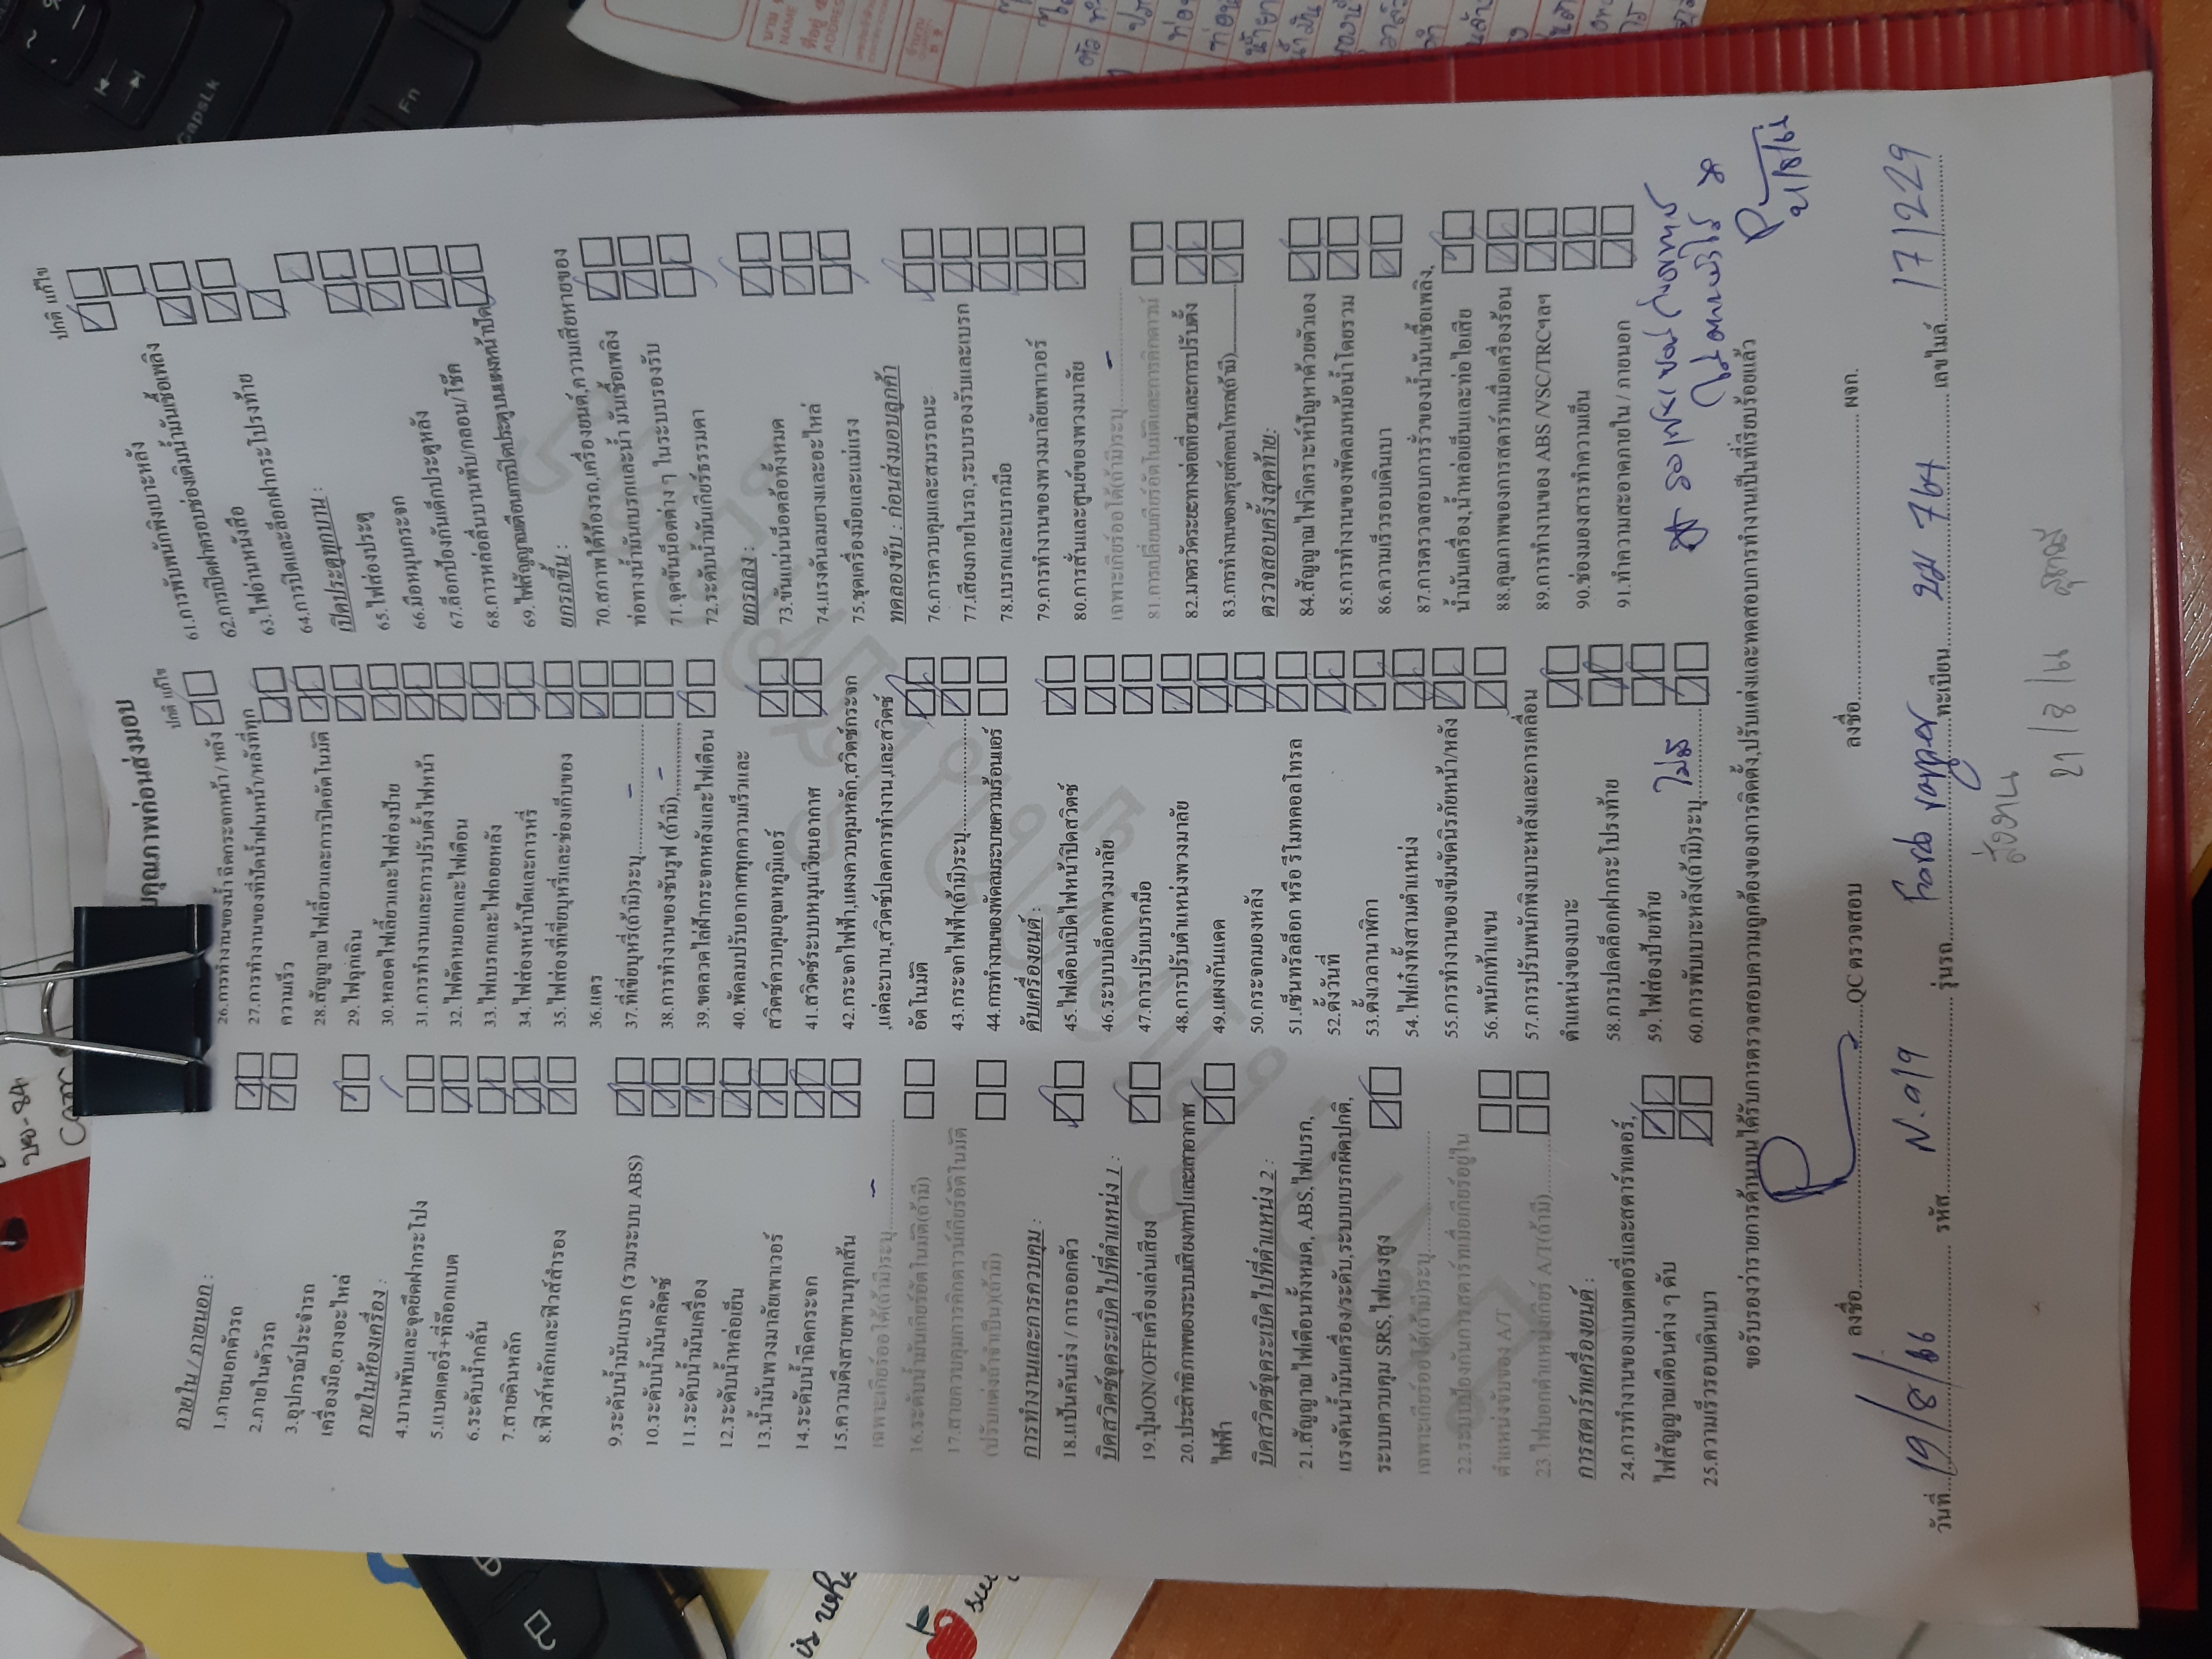 บคุณภาพก่อนส่งมอบ
ภายใน / ภายนอก :
1.ภายนอกตัวรถ
2.ภายในตัวรถ
3.อุปกรณ์ประจำรถ
เครื่องมือ,ยางอะไหล่
ภายในห้องเครื่อง :
4.บานพับและจุดยึดฝากระโปรง
5.แบตเตอรี่+ที่ล็อกแบต
6.ระดับน้ำกลั่น
7.สายดินหลัก
8.ฟิวส์หลักและฟิวส์สำรอง
9.ระดับน้ำมันเบรก (รวมระบบ ABS)
10.ระดับน้ำมันคลัตช์
11.ระดับน้ำมันเครื่อง
12.ระดับน้ำหล่อเย็น
13.น้ำมันพวงมาลัยเพาเวอร์
14.ระดับน้ำฉีดกระจก
15.ความตึงสายพานทุกเส้น
เฉพาะเกียร์ออโต้(ถ้ามี)ระบุ
16.ระดับน้ำมันเกียร์อัตโนมัติ(ถ้ามี)
17.สายควบคุมการคิกดาวน์เกียร์อัตโนมัติ
(ปรับแต่งถ้าจำเป็น)(ถ้ามี)
การทำงานและการควบคุม :
18.แป้นคันเร่ง / การออกตัว
บิดสวิตช์จุดระเบิดไปที่ตำแหน่ง 1 :
19.ปุ่มON/OFFเครื่องเล่นเสียง
20.ประสิทธิภาพของระบบเสียง/เทปและเสาอากาศ
ไฟฟ้า
บิดสวิตช์จุดระเบิดไปที่ตำแหน่ง 2 :
21.สัญญาณไฟเตือนทั้งหมด, ABS,ไฟเบรก,
แรงดันน้ำมันเครื่อง/ระดับ,ระบบเบรกผิดปกติ,
ระบบควบคุม SRS,ไฟแรงสูง
เฉพาะเกียร์ออโต้(ถ้ามี)ระบุ
22.ระบบป้องกันการสตาร์ทเมื่อเกียร์อยู่ใน
ตำแหน่งขับของ A/T
23.ไฟบอกตำแหน่งเกียร์ A/T(ถ้ามี)
การสตาร์ทเครื่องยนต์ :
24.การทำงานของแบตเตอรี่และสตาร์ทเตอร์,
ไฟสัญญาณเตือนต่าง ๆ ดับ
25.ความเร็วรอบเดินเบา
ปกติ แก้ไข
26.การทำงานของน้ำฉีดกระจกหน้า / หลัง
27.การทำงานของที่ปัดน้ำฝนหน้า/หลังที่ทุก
ความเร็ว
28.สัญญาณไฟเลี้ยวและการปิดอัตโนมัติ
29.ไฟฉุกเฉิน
30.หลอดไฟเลี้ยวและไฟส่องป้าย
31.การทำงานและการปรับตั้งไฟหน้า
32.ไฟตัดหมอกและไฟเตือน
33.ไฟเบรกและไฟถอยหลัง
34.ไฟส่องหน้าปัดและการหรี่
35.ไฟส่องที่เขี่ยบุหรี่และช่องเก็บของ
36.แตร
37.ที่เขี่ยบุหรี่(ถ้ามี)ระบุ -
38.การทำงานของซันรูฟ (ถ้ามี) -
39.ขดลวดไล่ฝ้ากระจกหลังและไฟเตือน
40.พัดลมปรับอากาศทุกความเร็วและ
สวิตช์ควบคุมอุณหภูมิแอร์
41.สวิตช์ระบบหมุนเวียนอากาศ
42.กระจกไฟฟ้า,แผงควบคุมหลัก,สวิตช์กระจก
,แต่ละบาน,สวิตช์ปลดการทำงาน,และสวิตช์
อัตโนมัติ
43.กระจกไฟฟ้า(ถ้ามี)ระบุ
44.การทำงานของพัดลมระบายความร้อนแอร์
ดับเครื่องยนต์ :
45.ไฟเตือนเปิดไฟหน้าปิดสวิตช์
46.ระบบบล็อกพวงมาลัย
47.การปรับเบรกมือ
48.การปรับตำแหน่งพวงมาลัย
49.แผงกันแดด
50.กระจกมองหลัง
51.เซ็นทรัลล็อก หรือ รีโมทคอลโทรล
52.ตั้งวันที่
53.ตั้งเวลานาฬิกา
54.ไฟเก๋งทั้งสามตำแหน่ง
55.การทำงานของเข็มขัดนิรภัยหน้า/หลัง
56.พนักเท้าแขน
57.การปรับพนักพิงเบาะหลังและการเคลื่อน
ตำแหน่งของเบาะ
58.การปลดล็อกฝากระโปรงท้าย
59.ไฟส่องป้ายท้าย
60.การพับเบาะหลัง(ถ้ามี)ระบุ ไม่มี
ปกติ แก้ไข
61.การพับพนักพิงเบาะหลัง
62.การปิดฝาครอบช่องเติมน้ำมันเชื้อเพลิง
63.ไฟอ่านหนังสือ
64.การปิดและล็อกฝากระโปรงท้าย
เปิดประตูทุกบาน :
65.ไฟส่องประตู
66.มือหมุนกระจก
67.ล็อกป้องกันเด็กประตูหลัง
68.การหล่อลื่นบานพับ/กลอน/โช๊ค
69.ไฟสัญญาณเตือนการปิดประตูบนแผงหน้าปัด
ยกรถขึ้น :
70.สภาพใต้ท้องรถ,เครื่องยนต์,ความเสียหายของ
ท่อทางน้ำมันเบรกและน้ำ มันเชื้อเพลิง
71.จุดขันน็อตต่าง ๆ ในระบบรองรับ
72.ระดับน้ำมันเกียร์ธรรมดา
ยกรถลง :
73.ขันแน่นน็อตล้อทั้งหมด
74.แรงดันลมยางและอะไหล่
75.ชุดเครื่องมือและแม่แรง
ทดลองขับ : ก่อนส่งมอบลูกค้า
76.การควบคุมและสมรรถนะ
77.เสียงภายในรถ,ระบบรองรับและเบรก
78.เบรกและเบรกมือ
79.การทำงานของพวงมาลัยเพาเวอร์
80.การสั่นและศูนย์ของพวงมาลัย
เฉพาะเกียร์ออโต้(ถ้ามี)ระบุ -
81.การเปลี่ยนเกียร์อัตโนมัติและการคิกดาวน์
82.มาตรวัดระยะทางต่อเที่ยวและการปรับตั้ง
83.การทำงานของครุยส์คอนโทรล(ถ้ามี)
ตรวจสอบครั้งสุดท้าย:
84.สัญญาณไฟวิเคราะห์ปัญหาด้วยตัวเอง
85.การทำงานของพัดลมหม้อน้ำโดยรวม
86.ความเร็วรอบเดินเบา
87.การตรวจสอบการรั่วของน้ำมันเชื้อเพลิง,
น้ำมันเครื่อง,น้ำหล่อเย็นและท่อไอเสีย
88.คุณภาพของการสตาร์ทเมื่อเครื่องร้อน
89.การทำงานของ ABS /VSC/TRCฯลฯ
90.ช่องมองสารทำความเย็น
91.ทำความสะอาดภายใน / ภายนอก
21/8/66
ขอรับรองว่ารายการด้านบนได้รับการตรวจสอบความถูกต้องของการติดตั้ง,ปรับแต่งและทดสอบการทำงานเป็นที่เรียบร้อยแล้ว
ลงชื่อ QC ตรวจสอบ ลงชื่อ ผจก.
วันที่ 19/8/66 รหัส N.019 รุ่นรถ Ford ranger ทะเบียน 764 เลขไมล์ 171229
CapsLk
Fn
NAME
ADDRESS